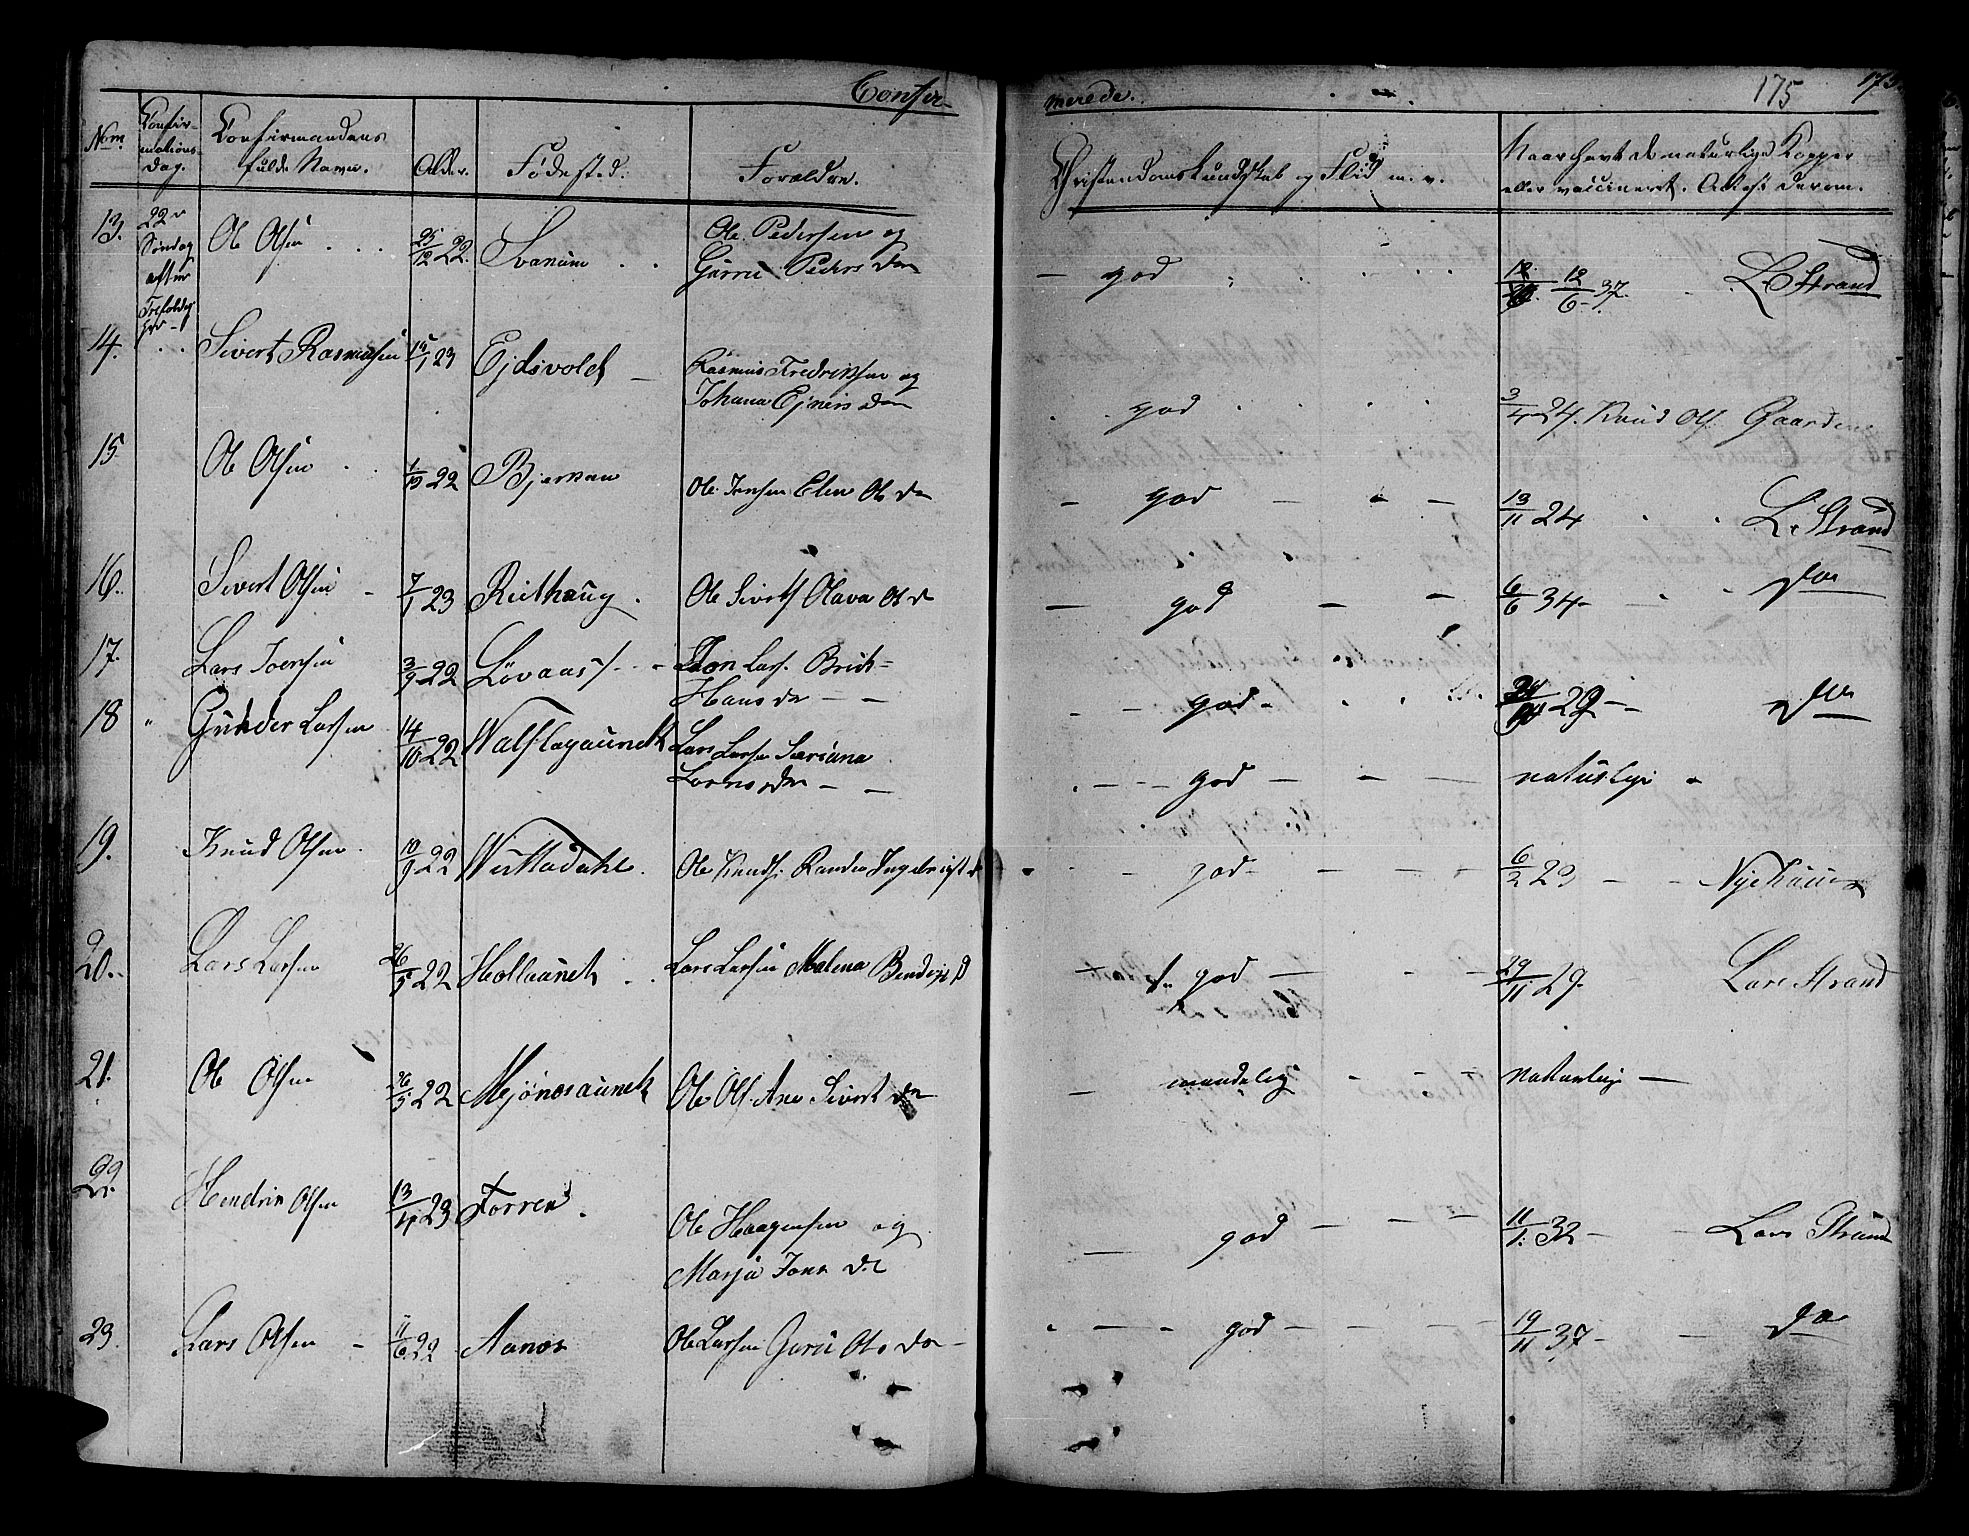 Confir-
merede.
175
Nom
Confir-
mations
Dag.
Confirmandens
fulde Navn.
Alder.
Fødested.
Forældre.
Christendomskundskab og Flid m. v.
Naar havt de naturlige Kopper
eller vaccineret. Attest derom.
13. 22de Søndag efter Ole Olsen 25/12 22. Svanem Ole Pedersen og
Gurru Peders Dr
god 12/6 37. L Strand
14. Sivert Rasmusen 15/1 23 Ejdsvold Rasmus Fredriksen og
Johana Ejners Dr
god 3/4 24. Knud Ols. Gaarden
15 Ole Olsen 22 Ole Jensen Elen Ols Dr
god 13/11 24 L. Strand
16. Sivert Olsen 7/1 23 Riethaug Ole Siverts Olava Ols Dr
god 6/6 34 Do
17. Lars Joensen 3/9 22 Løvaas Jon Lars. Berit
Hans Dr
god 29 Do
18 Gunder Larsen 14/10 22 Walslagaunet Lars Larsen Seriana
Lornts Dr
god naturlige
19. Knud Olsen 10/9 22 Ole Knuds. Randea Ingebrigt D
god 6/2 23
20. Lars Larsen 26/5 22 Hollaunet Lars Larsen Malena Bendigt D
god 29/11 29. Lars Strand
21. Ole Olsen 26/5 22 Mjønesaunet Ole Ols. Ane Sivert Dr
maadelig naturlige
22. Hendrik Olsen 13/4 23 Forren Ole Haagensen og
Marja Jons Dr
god 11/1 32 Lars Strand
23. Lars Olsen 11/6 22 Aanes Ole Larsen Guru Ols Dr
god 19/11 37 Do